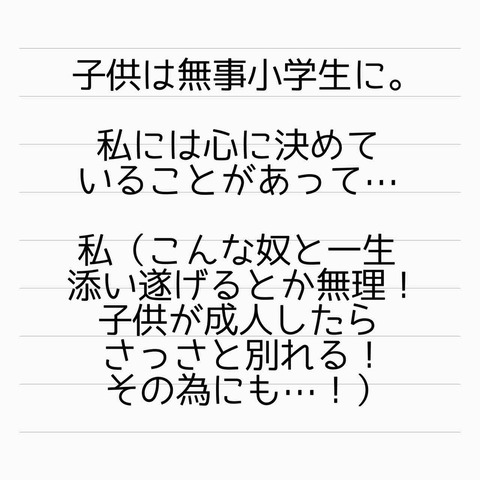 子供は無事小学生に。
私には心に決めて
いることがあって…
私（こんな奴と一生
添い遂げるとか無理！
子供が成人したら
さっさと別れる！
その為にも…！）